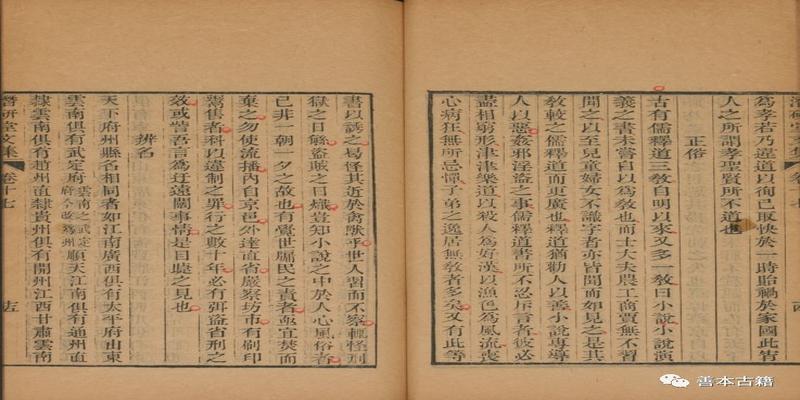 為孝若乃違道以徇己取快於一時貽禍於家國此皆
人之所謂孝聖賢所不道也
正俗
古有儒釋道三教自明以來又多一教曰小說小說演
義之書未嘗自以為教也而士大夫農工商賈無不習
聞之以至兒童婦女不識字者亦皆聞而如見之是其
教較之儒釋道而更廣也釋道猶勸人以善小說專導
人以惡姦邪淫盜之事儒釋道書所不忍斥言者彼必
盡相窮形津津樂道以殺人為好漢以漁色為風流喪
心病狂無所忌憚子弟之逸居無教者多矣又有此等
書以誘之曷怪其近於禽獸乎世人習而不察輒怪刑
獄之日繁盜賊之日熾豈知小說之中於人心風俗者
已非一朝一夕之故也有覺世牖民之責者亟宜焚而
棄之勿使流播內自京邑外達直省嚴察坊市有刷印
鬻售者科以違制之罪行之數十年必有弭盜省刑之
效或訾吾言為迂遠闊事情是目睫之見也
辨名
天下府州縣名相同者如江南廣西俱有太平府山東
雲南俱有武定府雲南之武定府今改為州順天江南俱有通州直
隸雲南俱有晉州直隸貴州俱有開州江西甘肅雲南
潛研堂文集
卷十七
善本古籍